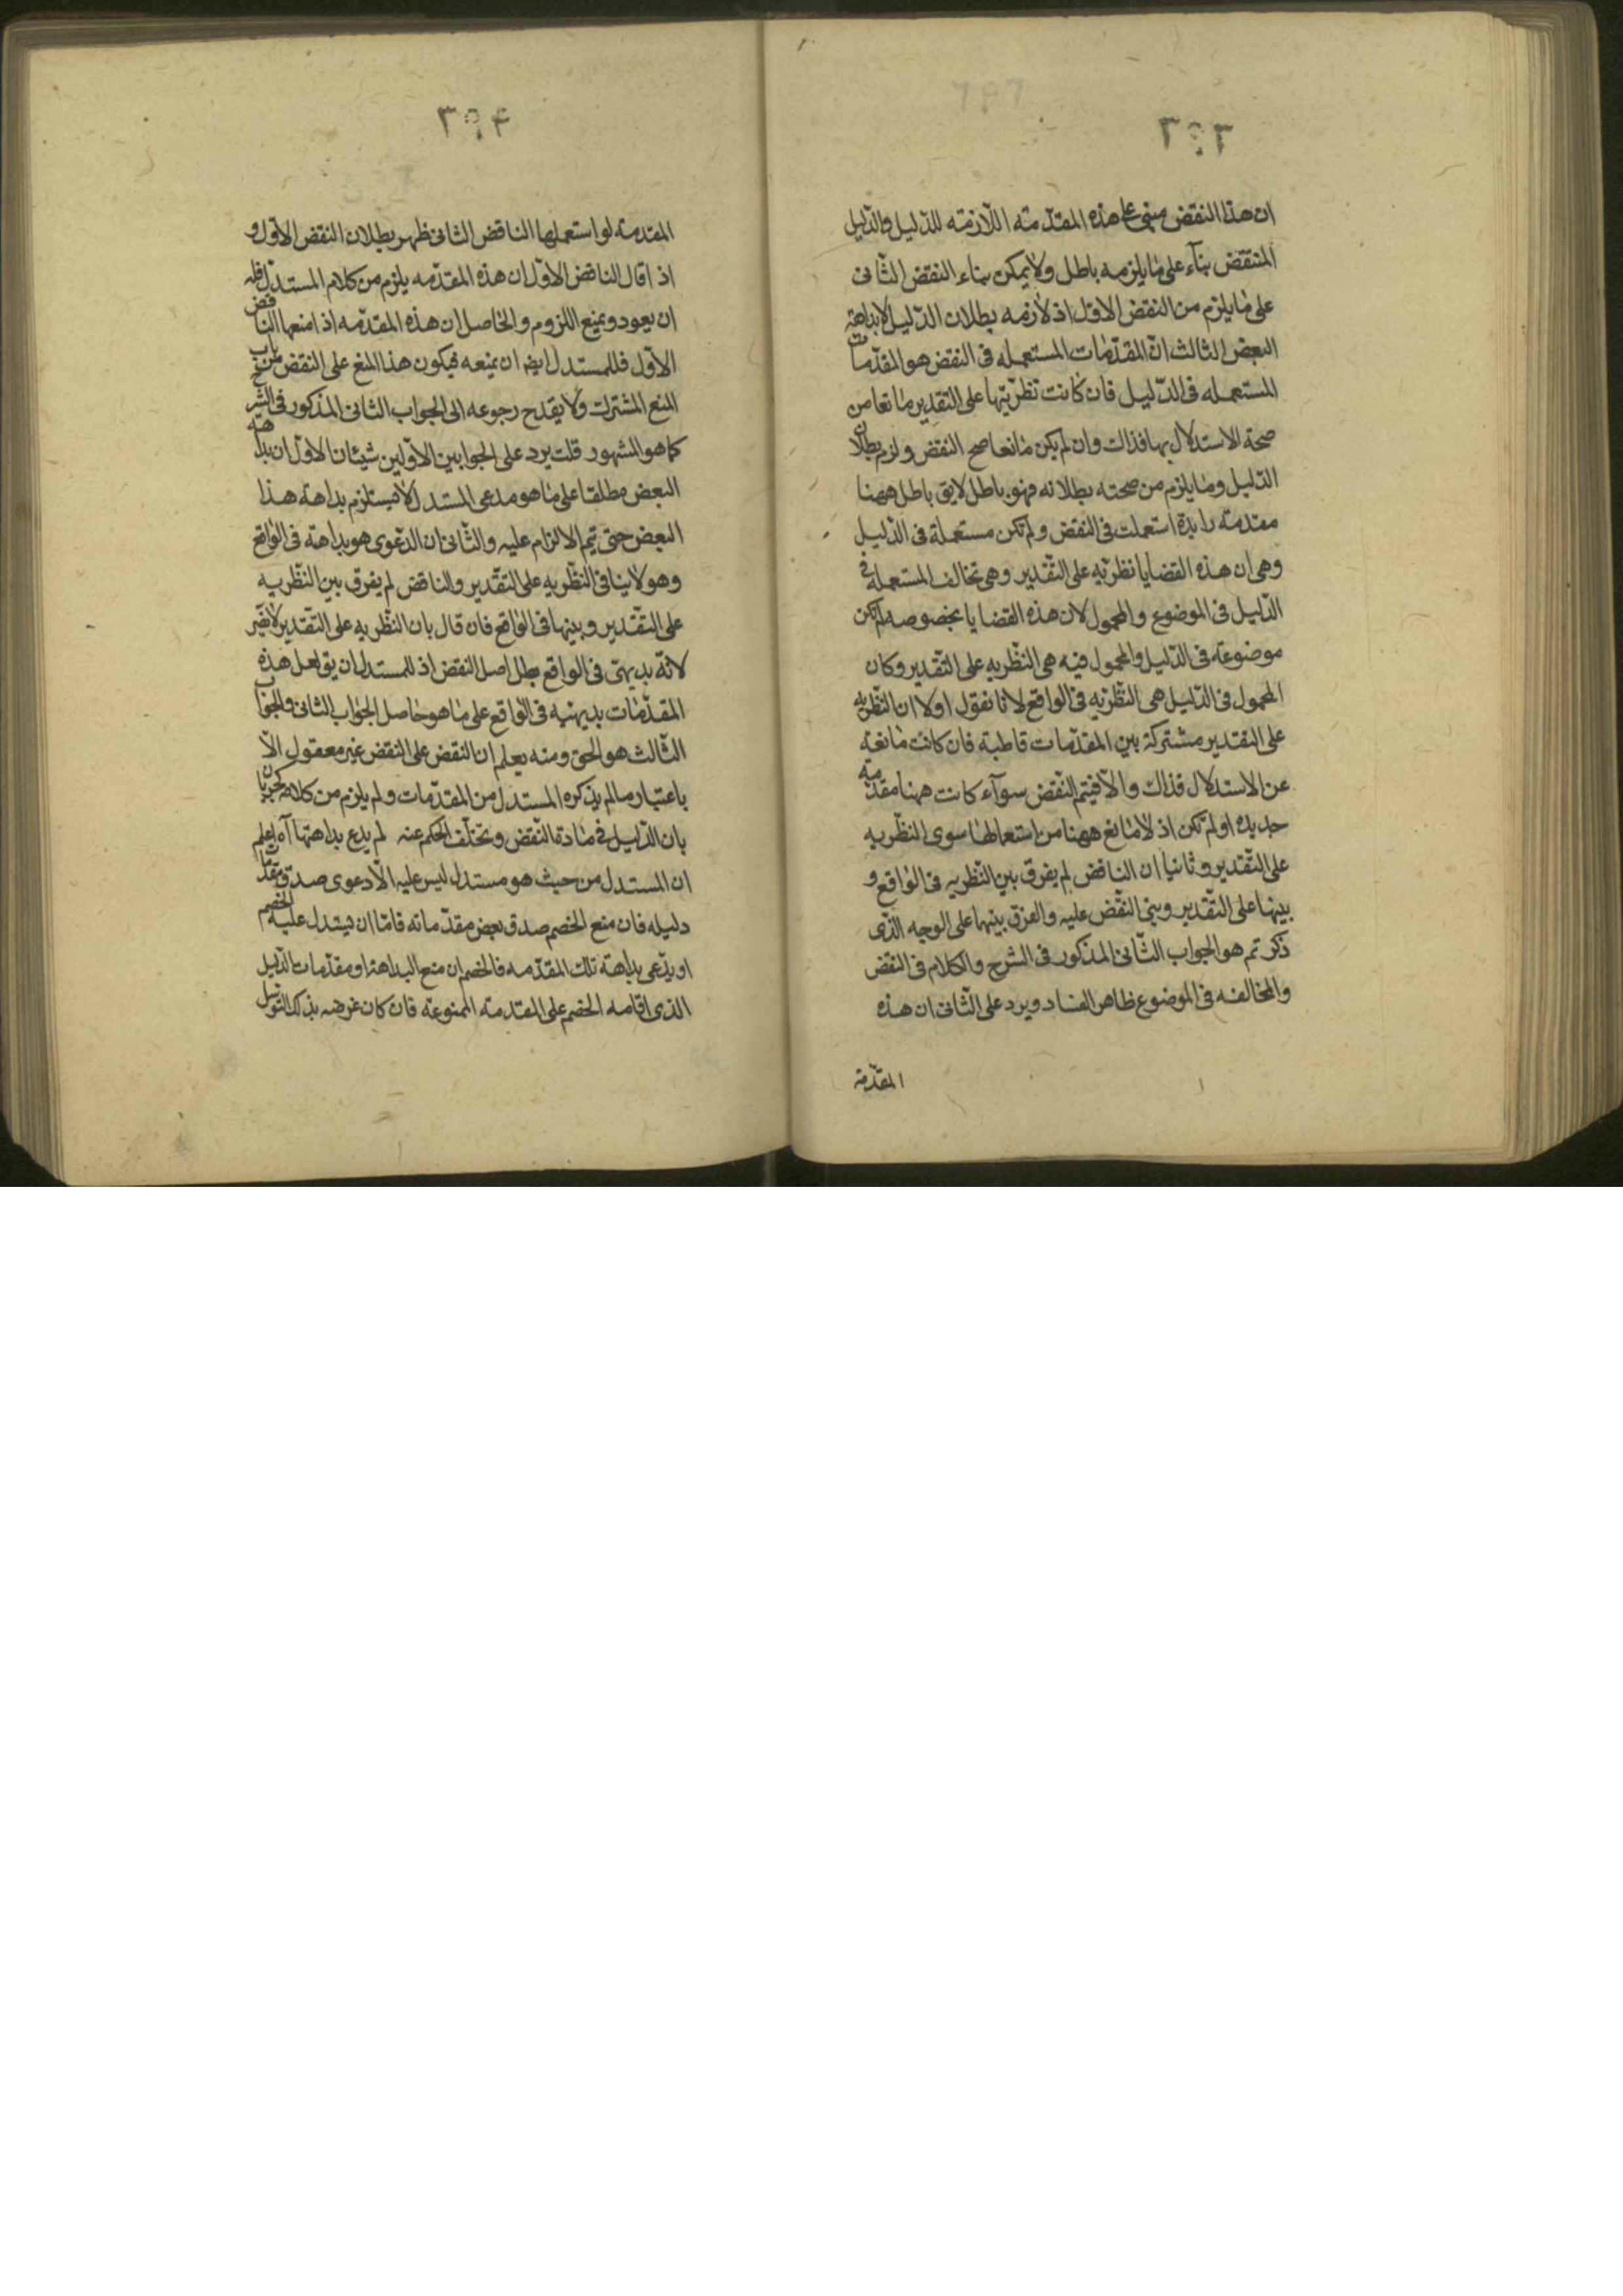 ٣٩٣
ان هذا النقض مبنى على هذه المقدّمته اللّازمته للدّليل والدّليل
المنتقض بنآء على ما يلزمه باطل ولا يمكن بناء النقض الثّانى
على ما يلزم من النقض الاوّل اذ لازمه بطلان الدّليل لا بداهة
البعض الثالث انّ المقدّمات المستعمله فى النقض هو المقدّمات
المستعمله فى الدّليل فان كانت نظريّتها على التقدير مانعا من
صحة الاستدلال بها فذاك وان لم يكن مانعا صح النقض ولزم بطلان
الدّليل وما يلزم من صحته بطلانه فهو باطل لايق باطل ههنا
مقدمته زايدة استعملت فى النقض ولم تكن مستعملة فى الدّليل
وهى ان هذه القضايا نظريّه على التّقدير وهى تخالف المستعمله فى
الدّليل فى الموضوع والمحمول لان هذه القضايا بخصوصها لم تكن
موضوعته فى الدّليل والمحمول فيه هى النّظريه على التّقدير وكان
المحمول فى الدّليل هى النّظريّه فى الواقع لانا نقول اولا ان النّظريه
على التقدير مشتركة بين المقدّمات قاطبة فان كانت مانعة
عن الاستدلال فذاك والّا فيتم النّقض سوآء كانت ههنا مقدّمته
جديده او لم تكن اذ لا مانع ههنا من استعمالها سوى النّظريه
على التّقدير وثانيا ان الناقض لم يفرق بين النّظريه فى الواقع و
بينها على التّقدير وبنى النّقض عليه والفرق بينها على الوجه الّذى
ذكر تم هو الجواب الثّانى المذكور فى الشرح والكلام فى النقض
والمخالفه فى الموضوع ظاهر الفساد ويرد على الثّانى ان هذه
المقدّمة
٣٩۴
المقدمة لو استعملها الناقض الثانى ظهر بطلان النقض الاوّل و
اذا قال الناقض الاوّل ان هذه المقدّمه يلزم من كلام المستدلّ فله
ان يعود ويمنع اللزوم والحاصل ان هذه المقدّمه اذا منعها الناقض
الاوّل فللمستدل ايضا ان يمنعه فيكون هذا المنع على النقض من باب
المنع المشترك ولا يقدح رجوعه الى الجواب الثانى المذكور فى الشرح
كما هو المشهور قلت يرد على الجوابين الاوّلين شيئان الاوّل ان بداهة
البعض مطلقا على ما هو مدعى المستدل لا يستلزم بداهة هذا
البعض حتى يتم الالزام عليه والثّانى ان الدعوى هو بداهته فى الواقع
وهو لا ينافى النّظريه على التّقدير والناقض لم يفرق بين النّظريه
على التّقدير وبينها فى الواقع فان قال بان النّظريه على التّقدير لا يضر
لانّه بديهىّ فى الواقع بطل اصل النقض اذ للمستدل ان يق لعل هذه
المقدّمات بديهيّه فى الواقع على ما هو حاصل الجواب الثانى والجواب
الثّالث هو الحق ومنه يعلم ان النقض على النقض غير معقول الّا
باعتبار ما لم يذكره المستدل من المقدّمات ولم يلزم من كلامه كجريان
بان الدّليل فى مادة النّقض وتخلّف الحكم عنه لم يدع بداهتها آه اعلم
ان المستدل من حيث هو مستدل ليس عليه الّا دعوى صدق مقدّمات
دليله فان منع الخصم صدق بعض مقدّماته فامّا ان يستدل عليه الخصم
او يدّعى بداهة تلك المقدّمه فالخصم ان منع البداهة او مقدّمات الدّليل
الذى اقامه الخصم على المقدمته الممنوعة فان كان غرضه بذلك